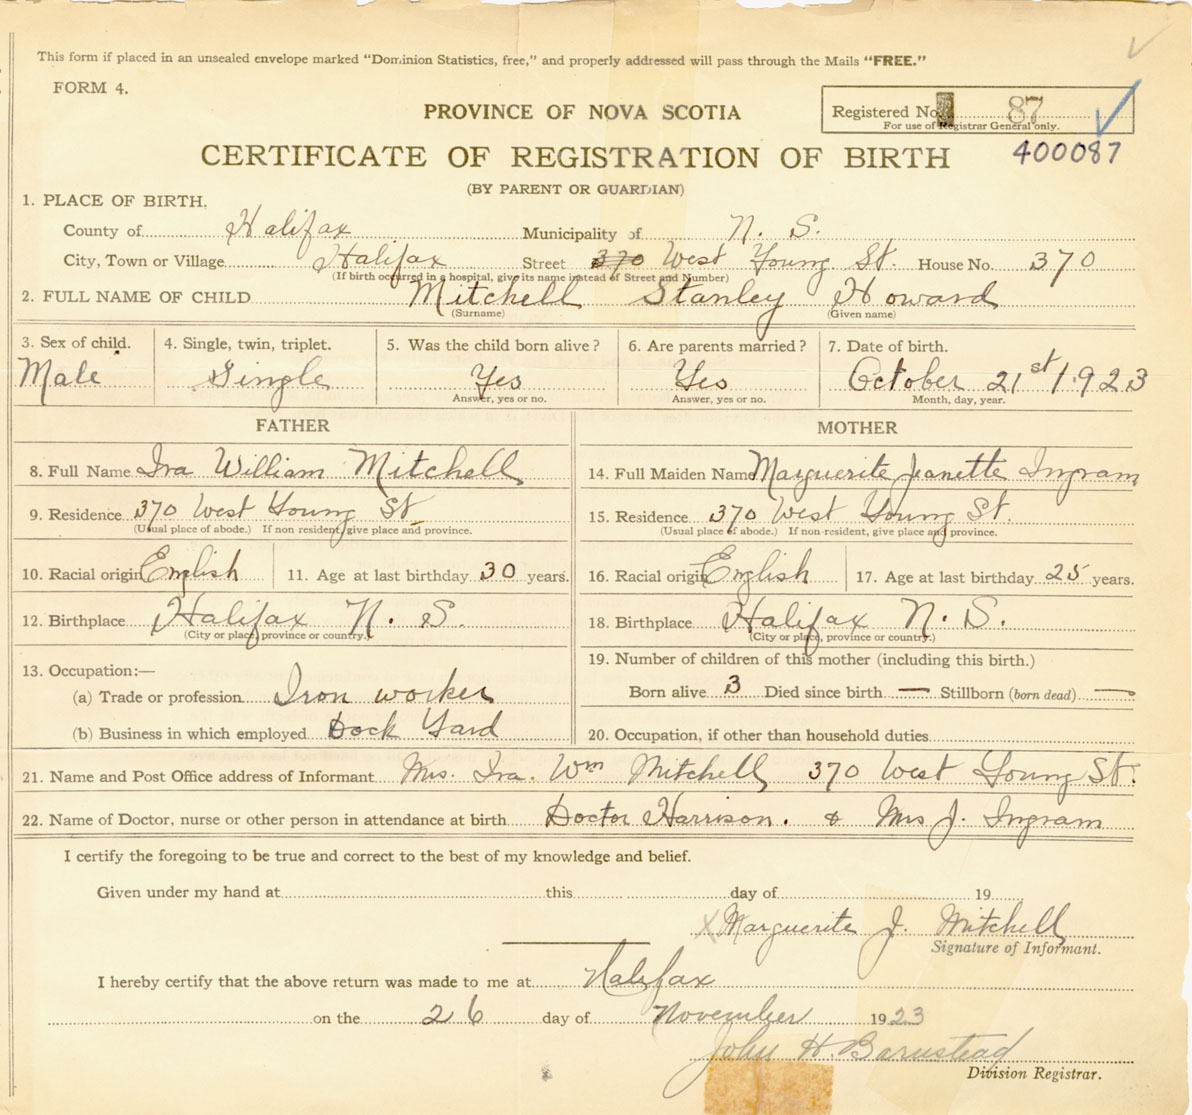 This form if placed in an unsealed envelope marked "Dominion Statistics, free," and properly addressed will pass through the Mails "FREE."
FORM 4.
Registered No. 87
For use of Registrar General only.
400087
PROVINCE OF NOVA SCOTIA
CERTIFICATE OF REGISTRATION OF BIRTH
(BY PARENT OR GUARDIAN)
1. PLACE OF BIRTH.
County of Halifax Municipality of N. S.
City, Town or Village Halifax Street 370 West Young St. House No. 370
(If birth occurred in a hospital, give its name instead of Street and Number)
2. FULL NAME OF CHILD Mitchell Stanley Howard
(Surname) (Given name)
3. Sex of child. 4. Single, twin, triplet. 5. Was the child born alive? 6. Are parents married? 7. Date of birth.
Male Single Yes Yes October 21st 1923
Answer, yes or no. Answer, yes or no. Month, day, year.
FATHER MOTHER
8. Full Name Ira William Mitchell 14. Full Maiden Name Marguerite Jeanette Ingram
9. Residence 370 West Young St. 15. Residence 370 West Young St.
(Usual place of abode.) If non resident, give place and province. (Usual place of abode.) If non-resident, give place and province.
10. Racial origin English 11. Age at last birthday 30 years. 16. Racial origin English 17. Age at last birthday 25 years.
12. Birthplace Halifax N. S. 18. Birthplace Halifax N. S.
(City or place, province or country.) (City or place, province or country.)
13. Occupation:— 19. Number of children of this mother (including this birth.)
(a) Trade or profession Iron worker Born alive 3 Died since birth — Stillborn (born dead) —
(b) Business in which employed Dock Yard 20. Occupation, if other than household duties
21. Name and Post Office address of Informant Mrs. Ira. Wm Mitchell 370 West Young St.
22. Name of Doctor, nurse or other person in attendance at birth Doctor Harrison. & Mrs J. Ingram
I certify the foregoing to be true and correct to the best of my knowledge and belief.
Given under my hand at this day of 19
X Marguerite J. Mitchell
Signature of Informant.
I hereby certify that the above return was made to me at Halifax
on the 26 day of November 1923
John H. Barnstead
Division Registrar.